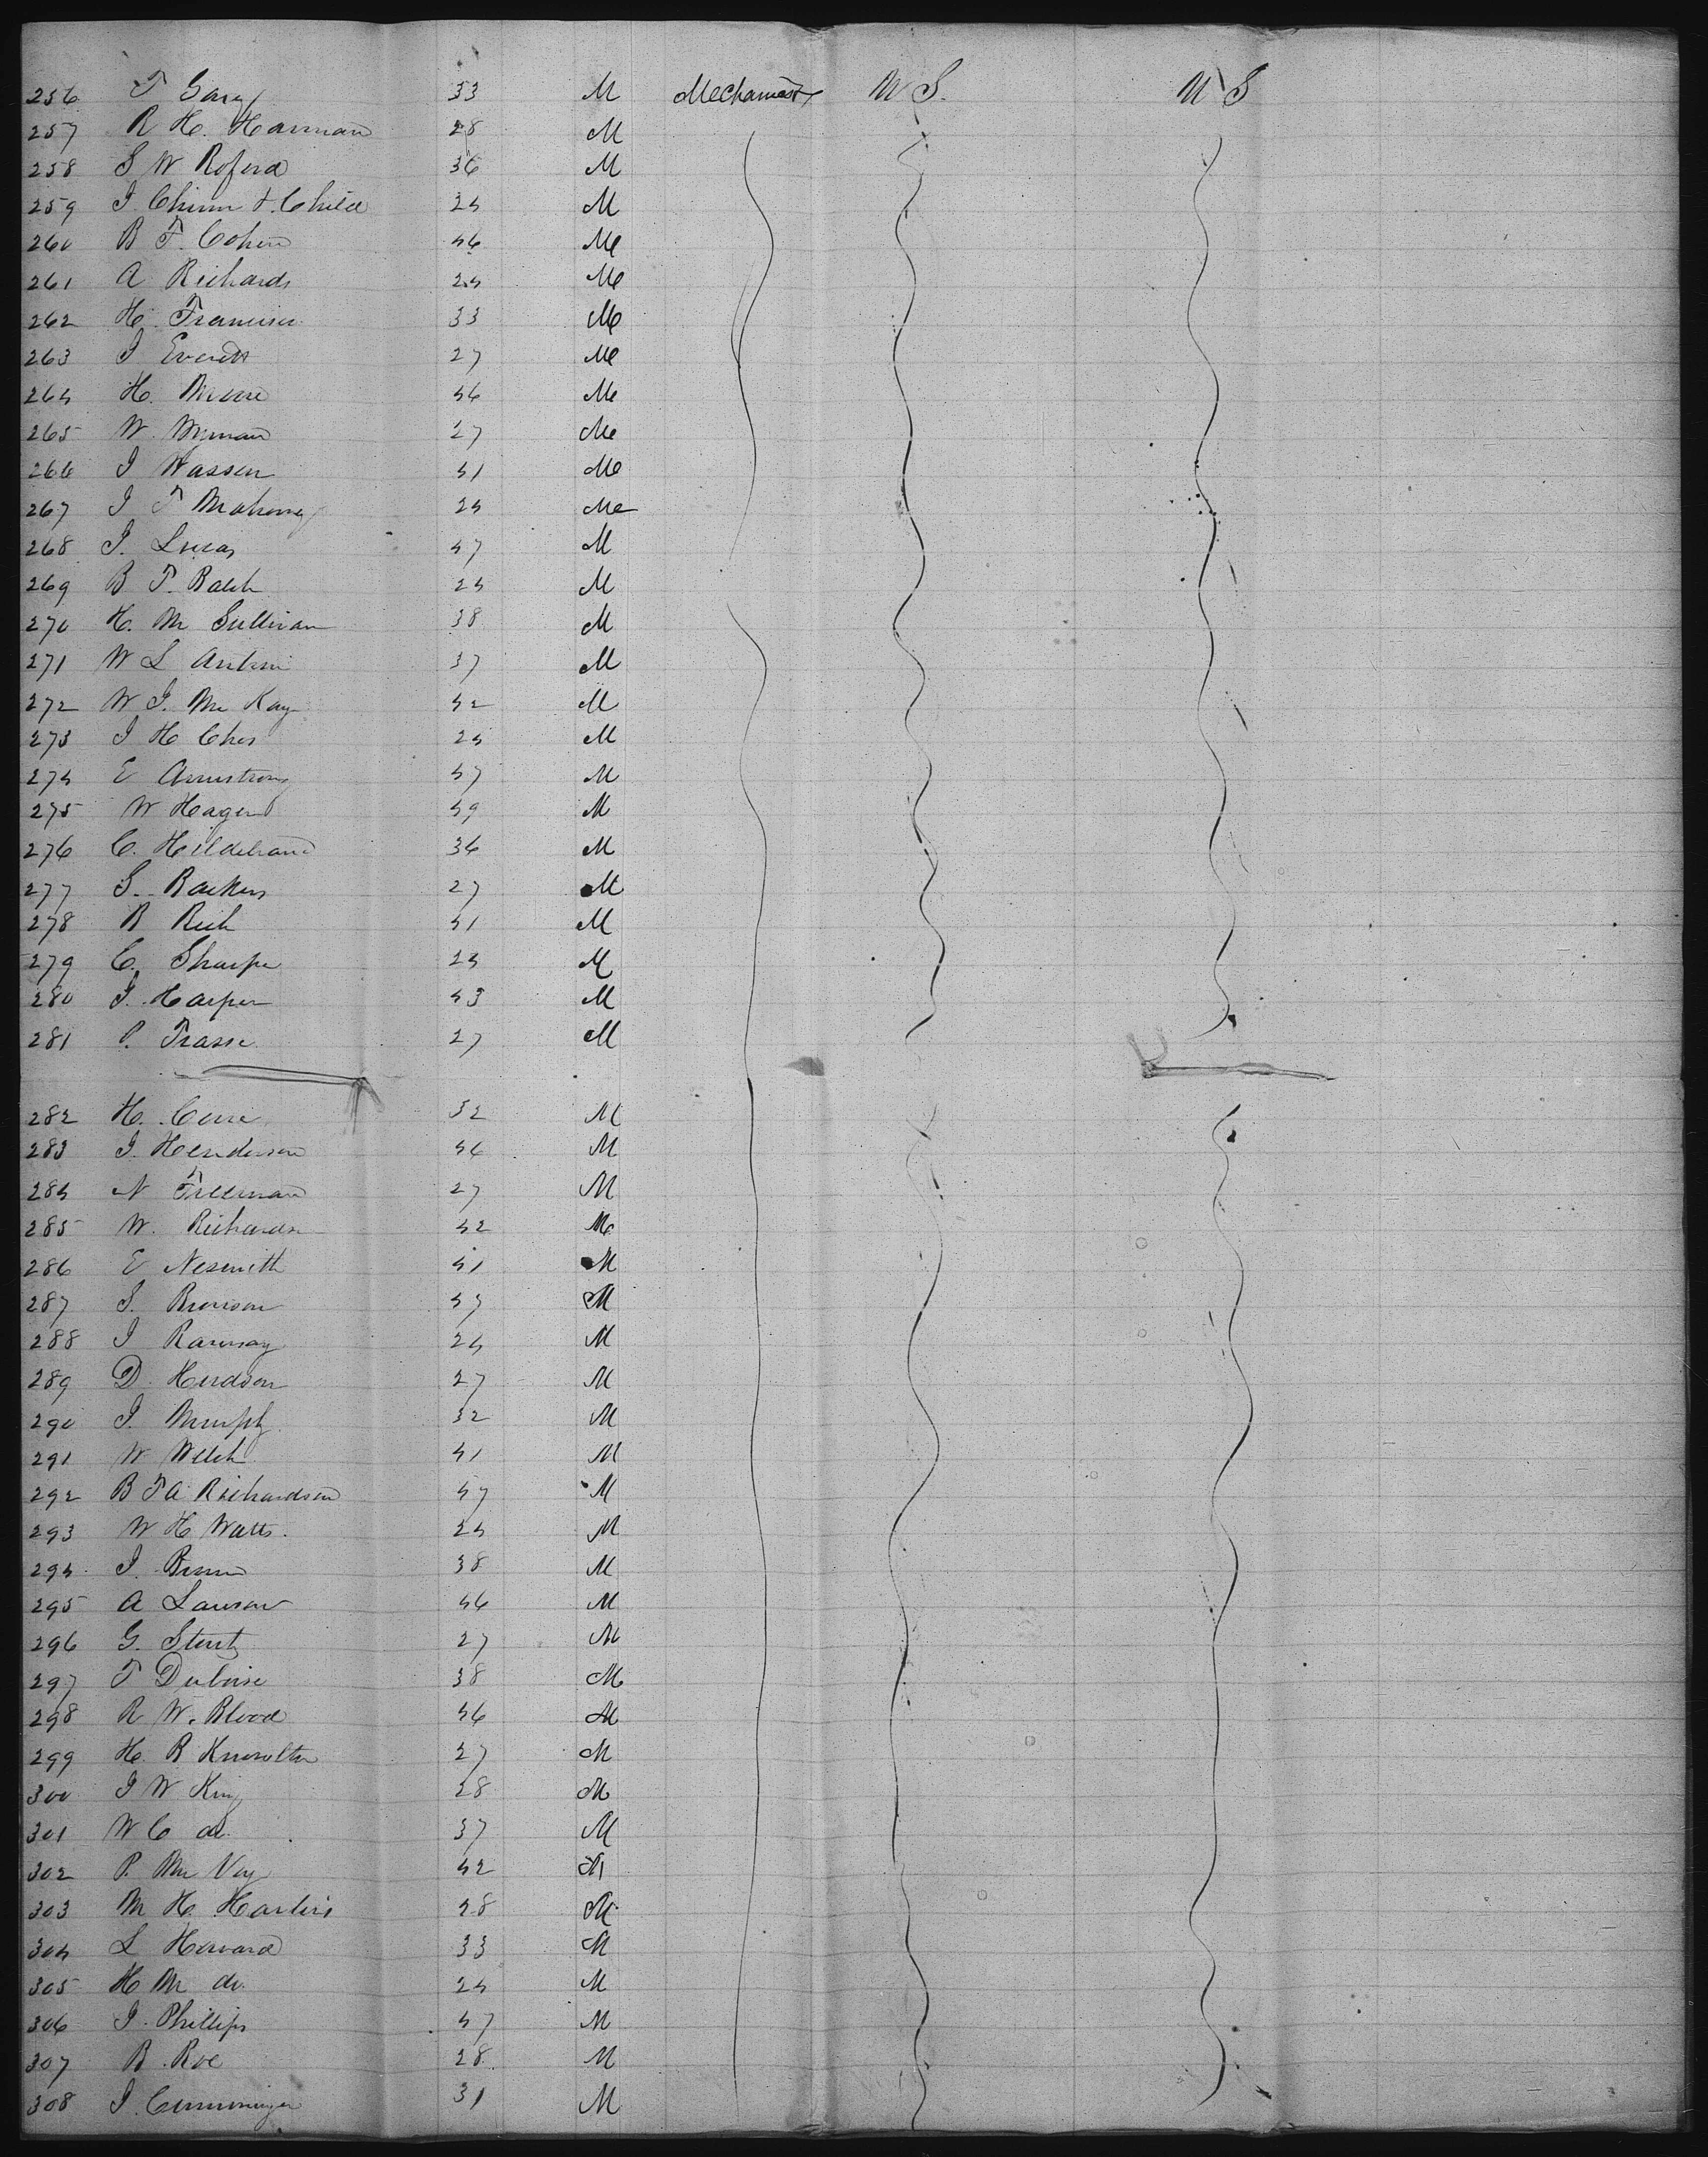 256 T Gary 33 M Mechanics U S. U S
257 R H. Harman 28 M
258 S W Roford 36 M
259 J Chinn & Child 24 M
260 B F. Cohen 46 M
261 A Richards 24 M
262 H. Francisco 33 M
263 J Everett 27 M
264 H. Moore 46 M
265 W. Wyman 27 M
266 J Wasson 41 M
267 J F Mahoney 24 M
268 J. Lucas 47 M
269 B F. Balch 24 M
270 H. M Sullivan 38 M
271 W L 37 M
272 W J. Mc Kay 42 M
273 J H 24 M
274 E Armstrong 47 M
275 W Hagen 49 M
276 C. Hildebrand 36 M
277 S. 27 M
278 R Rich 41 M
279 C. Sharpe 24 M
280 J. Harper 43 M
281 P. 27 M
282 H. 32 M
283 J. Henderson 46 M
284 N Freeman 27 M
285 W. Richards 42 M
286 E Nesmith 41 M
287 S. Bronson 47 M
288 J Ramsay 24 M
289 D. Hudson 27 M
290 J. Murphy 32 M
291 W Welch 41 M
292 B F A Richardson 47 M
293 W H Watts. 24 M
294 J. Brown 38 M
295 A Lawson 46 M
296 G. Sturtz 27 M
297 T Duboise 38 M
298 R W. Blood 46 M
299 H. R Knowlton 27 M
300 J W King 28 M
301 W C do. 37 M
302 P. Mc Vay 42 M
303 M H 28 M
304 L Howard 33 M
305 H M do. 24 M
306 J. Phillips 47 M
307 B. Roe 28 M
308 J. Cummings 31 M